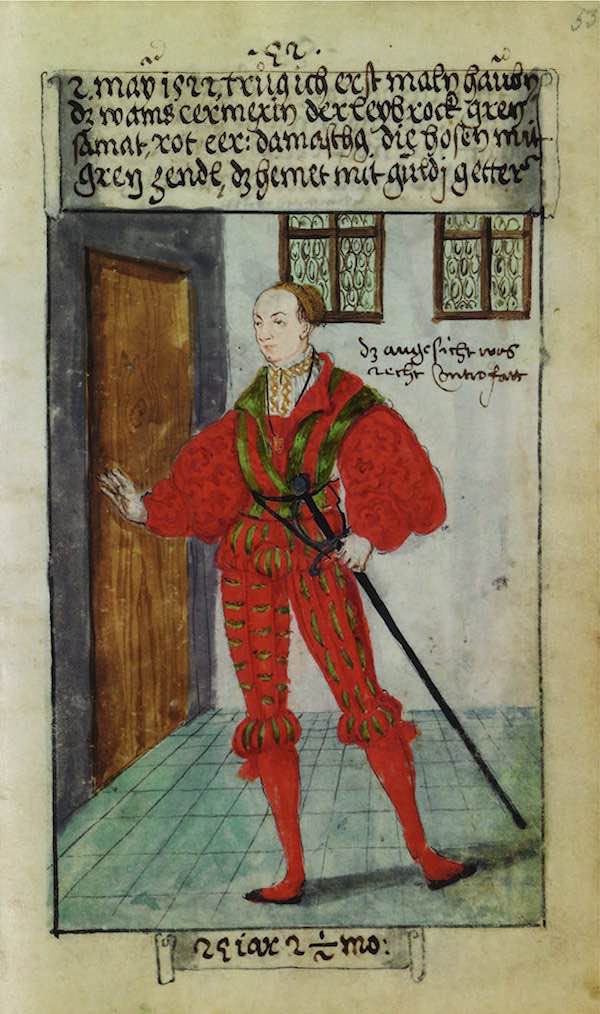 53
.52.
2. maÿ 1522, trůg ich erst maln haůbn
dz wams cermexin der leybrock gren
samat, rot eer: damaschg die hosen mit
gren zendl, dz hemet mit guldi getter
dz angesicht was
recht Controfatt
25 iar 2 1/2 mo: